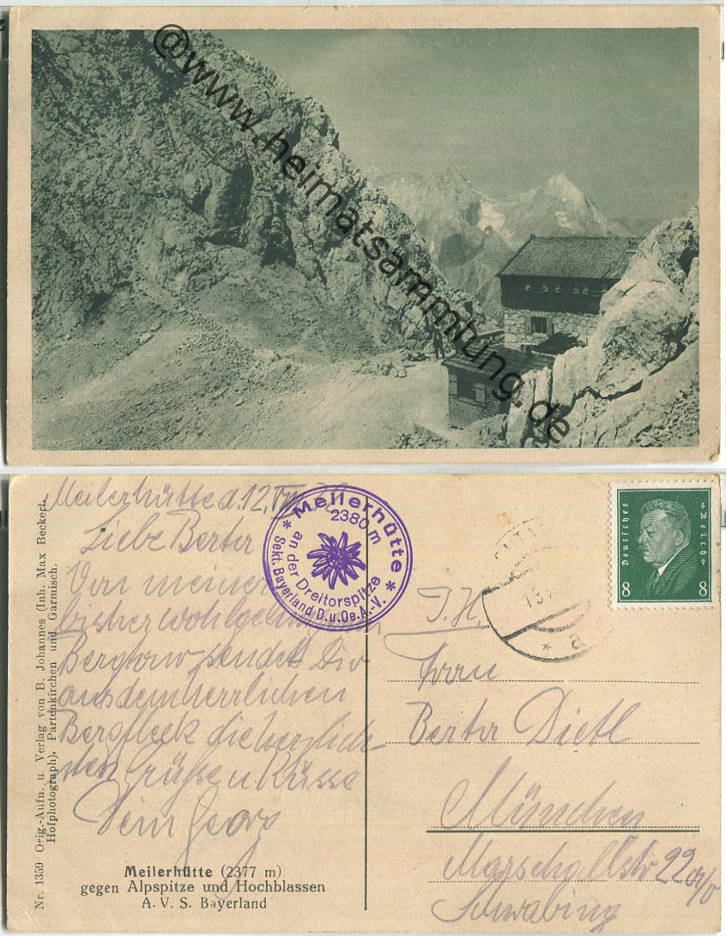 @www.heimatsammlung.de
Meilerhütte d. 12.
Liebe Berta
Von meiner
bisher wohlgelungenen
Bergtour sendet Dir
aus dem herrlichen
Bergfleck die herzlich-
sten Grüße u Küsse
Dein Georg
* Meilerhütte *
2380 m
an der Dreitorspitze
Sekt. Bayerland D.u.Oe.A.-V.
Deutsches Reich
8 8
13.
* a
I. H.
Frau
Berta Dietl
München
Marschallstr 22
Schwabing
Meilerhütte (2377 m)
gegen Alpspitze und Hochblassen
A. V. S. Bayerland
Nr. 1359 Orig.-Aufn. u. Verlag von B. Johannes (Inh. Max Beckert,
Hofphotograph), Partenkirchen und Garmisch.